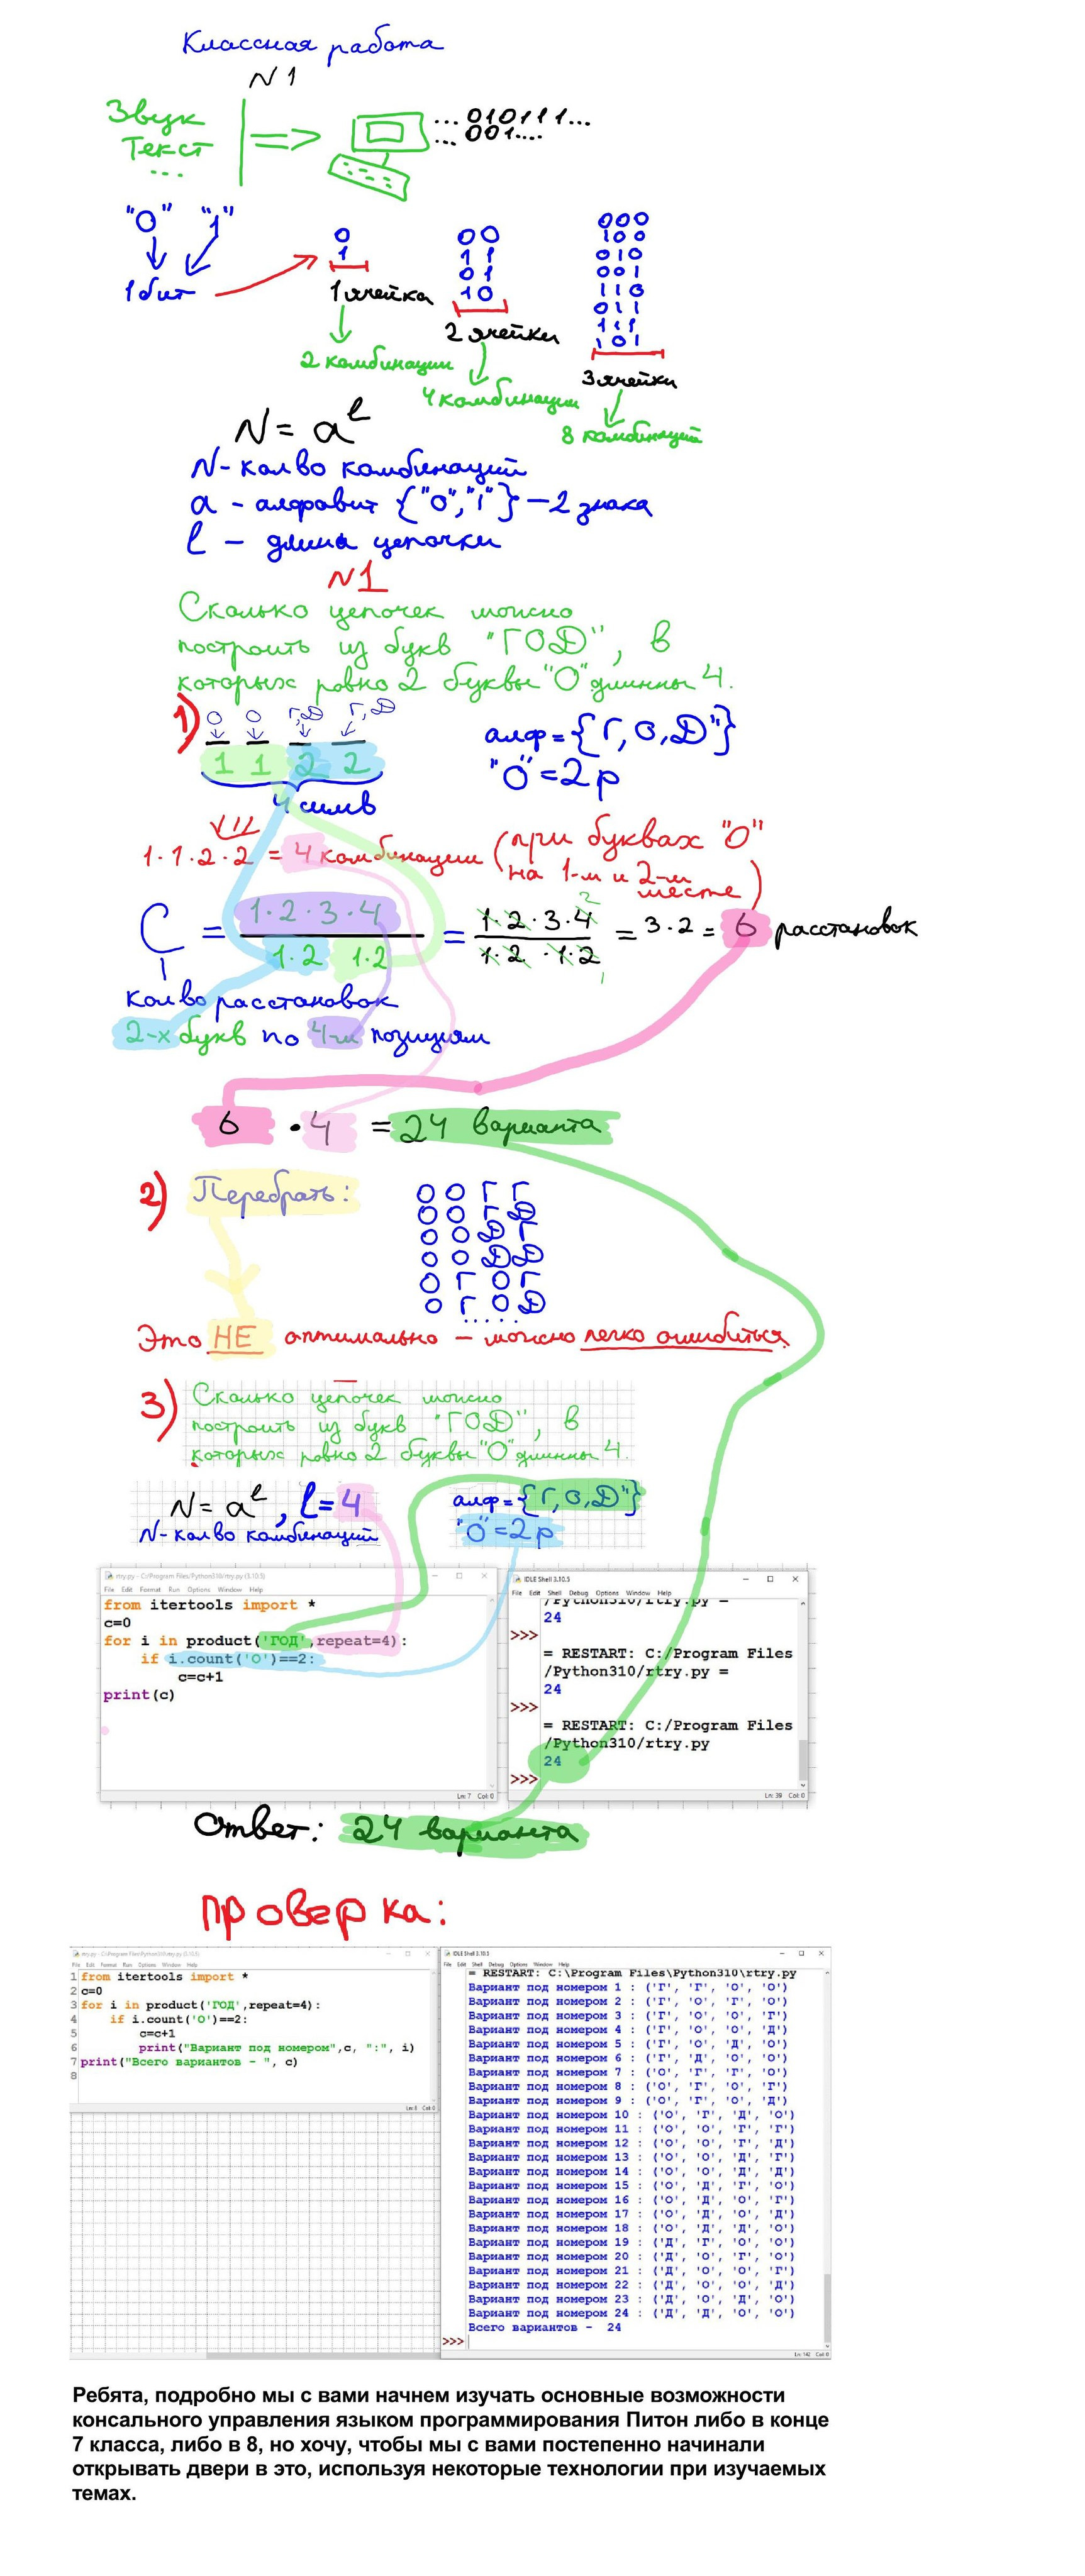 Классная работа
N1
Звук
Текст
...
...010111...
...001....
"0" "1"
1 бит
0
1
1 ячейка
2 комбинации
00
11
01
10
2 ячейки
4 комбинации
000
100
010
001
110
011
111
101
3 ячейки
8 комбинаций
N = a^l
N - кол во комбинаций
a - алфавит {"0","1"} - 2 знака
l - длина цепочки
N1
Сколько цепочек можно
построить из букв "ГОД", в
которых ровно 2 буквы "О" длинны 4.
1) О О Г,Д Г,Д
1 1 2 2
4 симв
алф = {Г,О,Д"}
"О" = 2 р
1·1·2·2 = 4 комбинации (при буквах "О"
на 1-м и 2-м
месте)
C = 1·2·3·4 / 1·2 1·2 = 1·2·3·4 / 1·2·1·2 = 3·2 = 6 расстановок
2
1
Кол во расстановок
2-х букв по 4-м позициям
6 · 4 = 24 варианта
2) Перебрать:
О О Г Г
О О Г Д
О О Д Г
О О Д Д
О Г О Г
О Г О Д
.....
Это НЕ оптимально – можно легко ошибиться
3) Сколько цепочек можно
построить из букв "ГОД", в
которых ровно 2 буквы "О" длинны 4.
N = a^l, l = 4
N - кол во комбинаций
алф = {Г,О,Д"}
"О" = 2 р
rtry.py - C:/Program Files/Python310/rtry.py (3.10.5)
File Edit Format Run Options Window Help
from itertools import *
c=0
for i in product('ГОД',repeat=4):
if i.count('О')==2:
c=c+1
print(c)
Ln: 7 Col: 0
IDLE Shell 3.10.5
File Edit Shell Debug Options Window Help
/Python310/rtry.py =
24
>>>
= RESTART: C:/Program Files
/Python310/rtry.py =
24
>>>
= RESTART: C:/Program Files
/Python310/rtry.py
24
>>>
Ln: 39 Col: 0
Ответ: 24 варианта
Проверка:
rtry.py - C:\Program Files\Python310\rtry.py (3.10.5)
File Edit Format Run Options Window Help
1 from itertools import *
2 c=0
3 for i in product('ГОД',repeat=4):
4 if i.count('О')==2:
5 c=c+1
6 print("Вариант под номером",c, ":", i)
7 print("Всего вариантов - ", c)
8
Ln: 8 Col: 0
IDLE Shell 3.10.5
File Edit Shell Debug Options Window Help
= RESTART: C:\Program Files\Python310\rtry.py
Вариант под номером 1 : ('Г', 'Г', 'О', 'О')
Вариант под номером 2 : ('Г', 'О', 'Г', 'О')
Вариант под номером 3 : ('Г', 'О', 'О', 'Г')
Вариант под номером 4 : ('Г', 'О', 'О', 'Д')
Вариант под номером 5 : ('Г', 'О', 'Д', 'О')
Вариант под номером 6 : ('Г', 'Д', 'О', 'О')
Вариант под номером 7 : ('О', 'Г', 'Г', 'О')
Вариант под номером 8 : ('О', 'Г', 'О', 'Г')
Вариант под номером 9 : ('О', 'Г', 'О', 'Д')
Вариант под номером 10 : ('О', 'Г', 'Д', 'О')
Вариант под номером 11 : ('О', 'О', 'Г', 'Г')
Вариант под номером 12 : ('О', 'О', 'Г', 'Д')
Вариант под номером 13 : ('О', 'О', 'Д', 'Г')
Вариант под номером 14 : ('О', 'О', 'Д', 'Д')
Вариант под номером 15 : ('О', 'Д', 'Г', 'О')
Вариант под номером 16 : ('О', 'Д', 'О', 'Г')
Вариант под номером 17 : ('О', 'Д', 'О', 'Д')
Вариант под номером 18 : ('О', 'Д', 'Д', 'О')
Вариант под номером 19 : ('Д', 'Г', 'О', 'О')
Вариант под номером 20 : ('Д', 'О', 'Г', 'О')
Вариант под номером 21 : ('Д', 'О', 'О', 'Г')
Вариант под номером 22 : ('Д', 'О', 'О', 'Д')
Вариант под номером 23 : ('Д', 'О', 'Д', 'О')
Вариант под номером 24 : ('Д', 'Д', 'О', 'О')
Всего вариантов - 24
>>>
Ln: 142 Col: 0
Ребята, подробно мы с вами начнем изучать основные возможности
консального управления языком программирования Питон либо в конце
7 класса, либо в 8, но хочу, чтобы мы с вами постепенно начинали
открывать двери в это, используя некоторые технологии при изучаемых
темах.